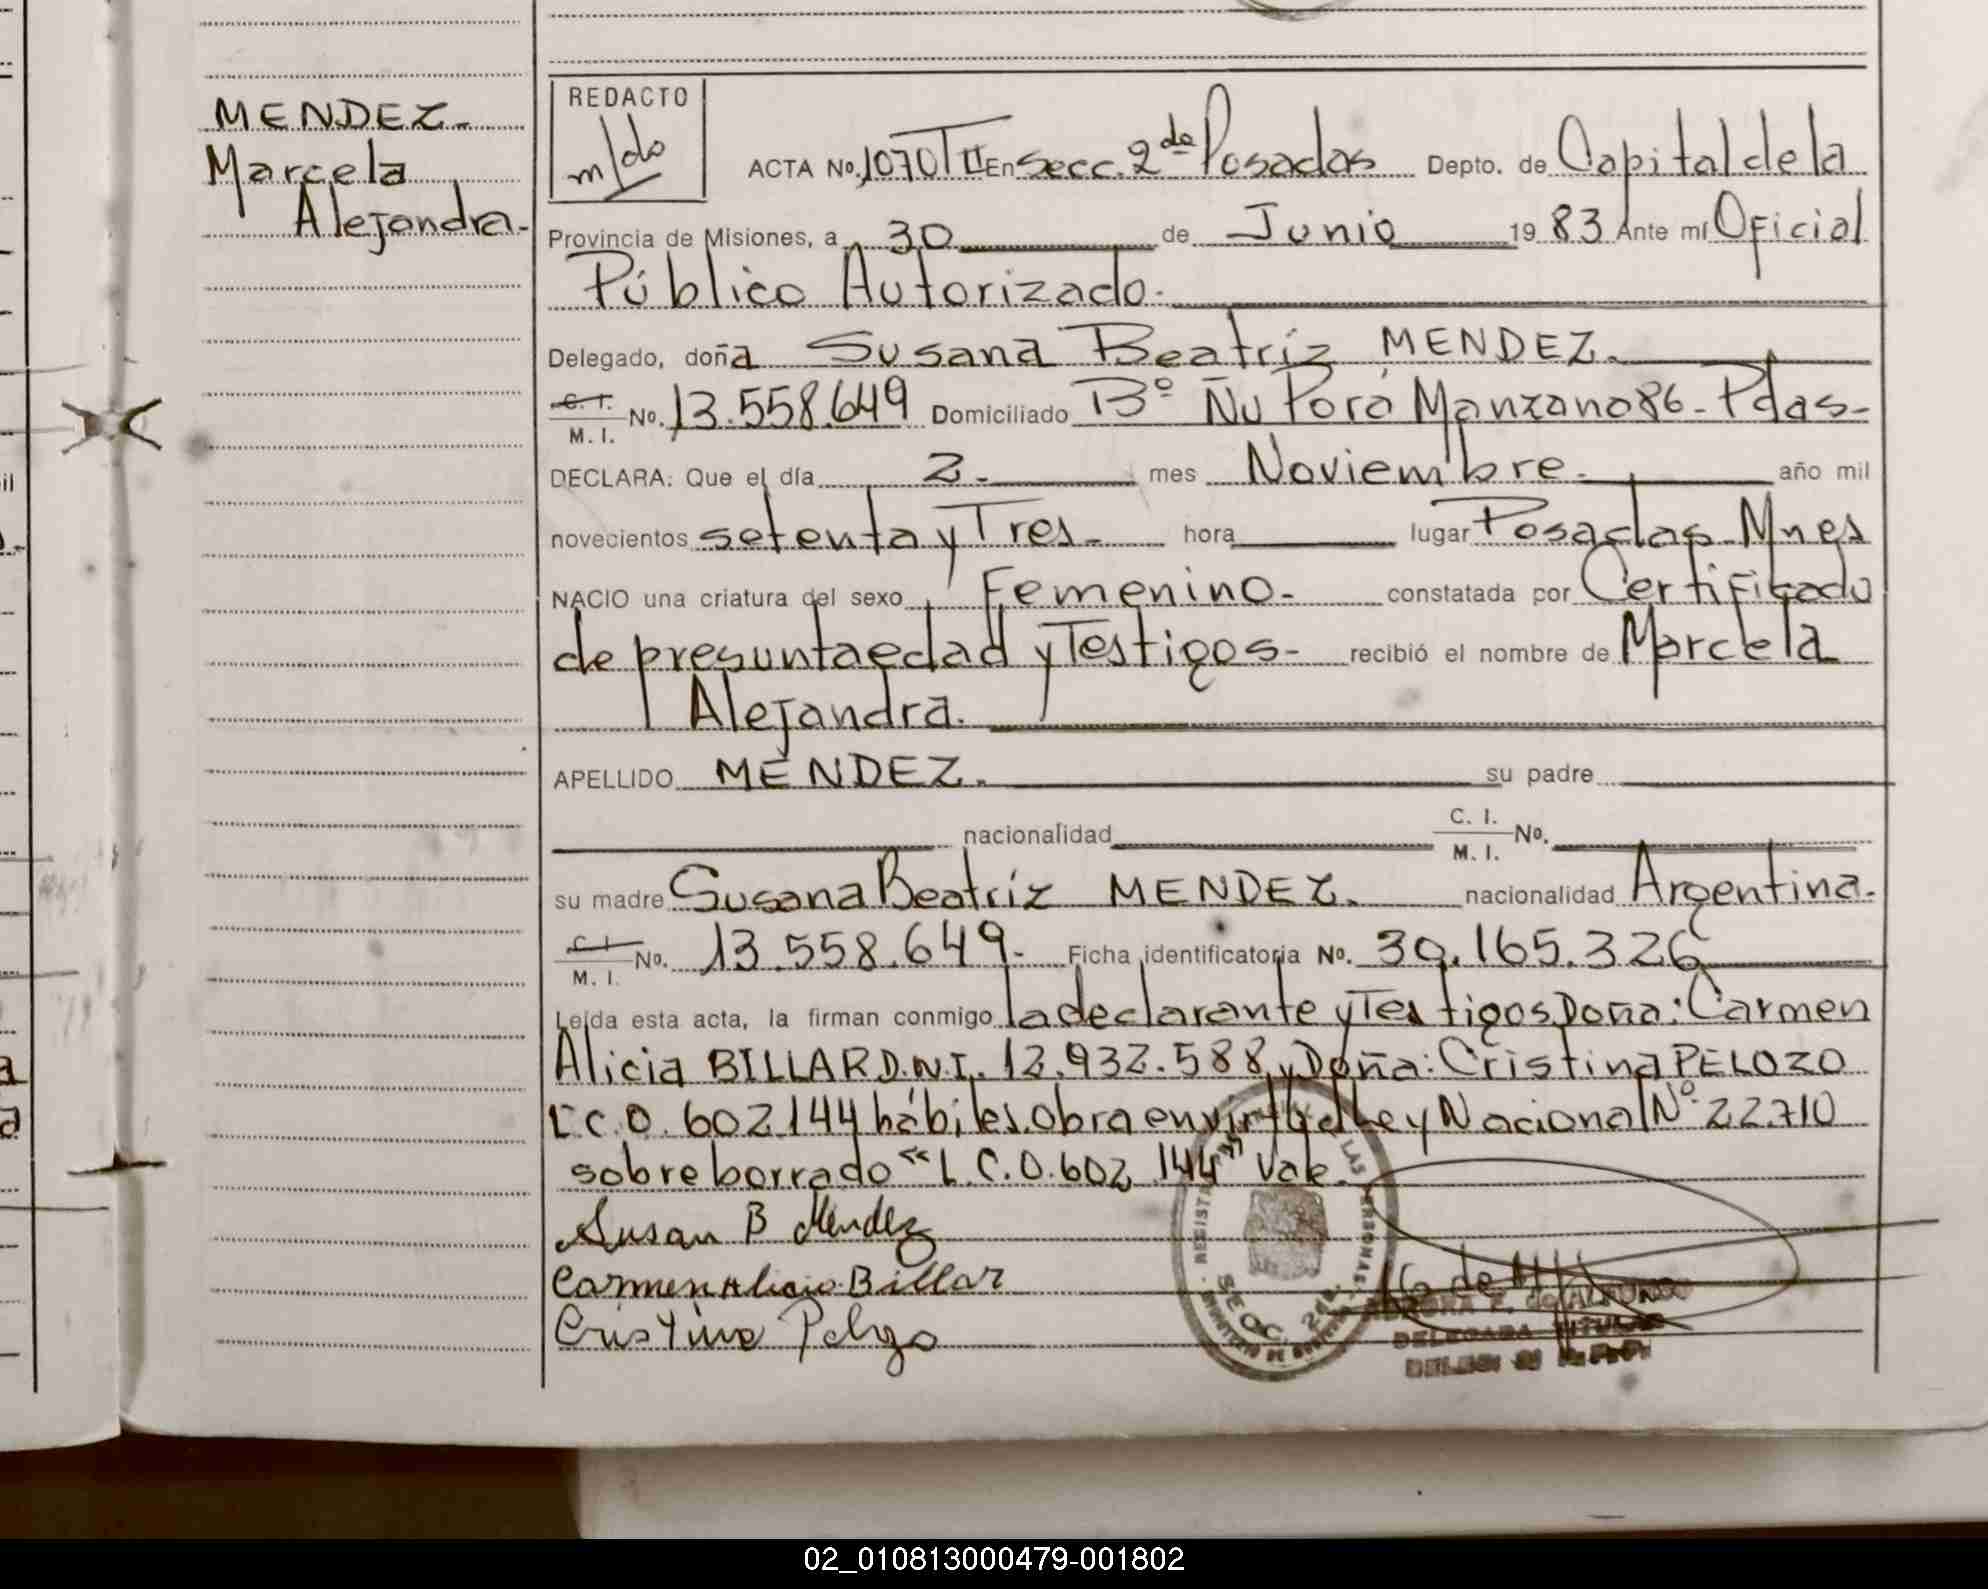 MENDEZ-
Marcela
Alejandra.-
REDACTO
m/do
ACTA No. 1070 T II En secc. 2da Posadas Depto. de Capital de la
Provincia de Misiones, a 30 de Junio 19 83 Ante mí Oficial
Público Autorizado.
Delegado, doña Susana Beatríz MENDEZ.
C. I. M. I. No. 13.558.649 Domiciliado Bº Ñu Porá Manzana 86 - Pdas-
DECLARA: Que el día 2.- mes Noviembre.- año mil
novecientos setenta y Tres.- hora lugar Posadas Mnes
NACIO una criatura del sexo Femenino.- constatada por Certificado
de presunta edad y Testigos- recibió el nombre de Marcela
Alejandra.
APELLIDO MENDEZ. su padre
nacionalidad C. I. M. I. No.
su madre Susana Beatríz MENDEZ. nacionalidad Argentina.
C. I. M. I. No. 13.558.649.- Ficha identificatoria No. 30.165.326
Leída esta acta, la firman conmigo la declarante y Testigos Doña: Carmen
Alicia BILLARD D.N.I. 12.932.588 y Doña: Cristina PELOZO
L.C.0.602.144 hábiles. Obra en virtud Ley Nacional Nº 22.710
sobre borrado "L.C.0.602.144" Vale.
Susan B Mendez
Carmen Alicia Billar
Cristina Pelozo
REGISTR LAS PERSONAS
SECC. 2da.
de ALFONSO
DELEGADA TITULAR
02_010813000479-001802